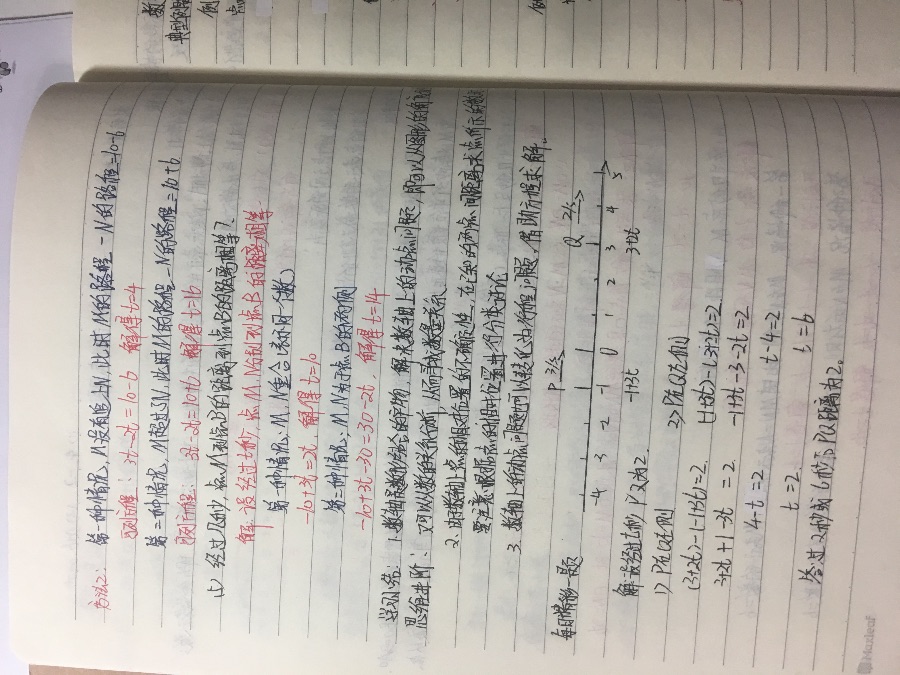 方法2: 第一种情况, M没有追上N, 此时M的路程-N的路程=10-6
可列方程: 3t-2t=10-6 解得t=4
第二种情况, M超过N, 此时M的路程-N的路程=10+6
可列方程: 3t-2t=10+6 解得t=16
(5) 经过几秒, 点M、N到点B的距离相等?
解: 设经过t秒, 点M、N分别到点B的距离相等.
第一种情况, M、N重合(表示同一个数)
-10+3t=2t, 解得t=10
第二种情况, M、N为于点B的两侧
-10+3t-30=30-2t, 解得t=14
1.数轴是数形结合的产物, 解决数轴上的动点问题, 即可以从图形的角
思维进阶: 又可以从数的关系分析, 从而寻找数量关系
2. 由于数轴上点的相对位置的不确定性, 在已知的两点间距离求点所示的数
要注意根据点的相对位置进行分类讨论
3. 数轴上的动点问题可以转化为行程问题, 借助方程求解。
每日常彩一题
P 3/s Q 2/s
-4 3 -2 -1 0 1 2 3 4 5
-1+3t 3+2t
解: 设经过t秒, PQ为2.
1) P在Q左侧 2) P在Q右侧
(3+2t)-(-1+3t)=2 (-1+3t)-(3+2t)=2
3+2t+1-3t=2 -1+3t-3-2t=2
4-t=2 t-4=2
t=2 t=6
答: 过2秒或6秒后PQ距离为2。
Maxleaf
典型例题